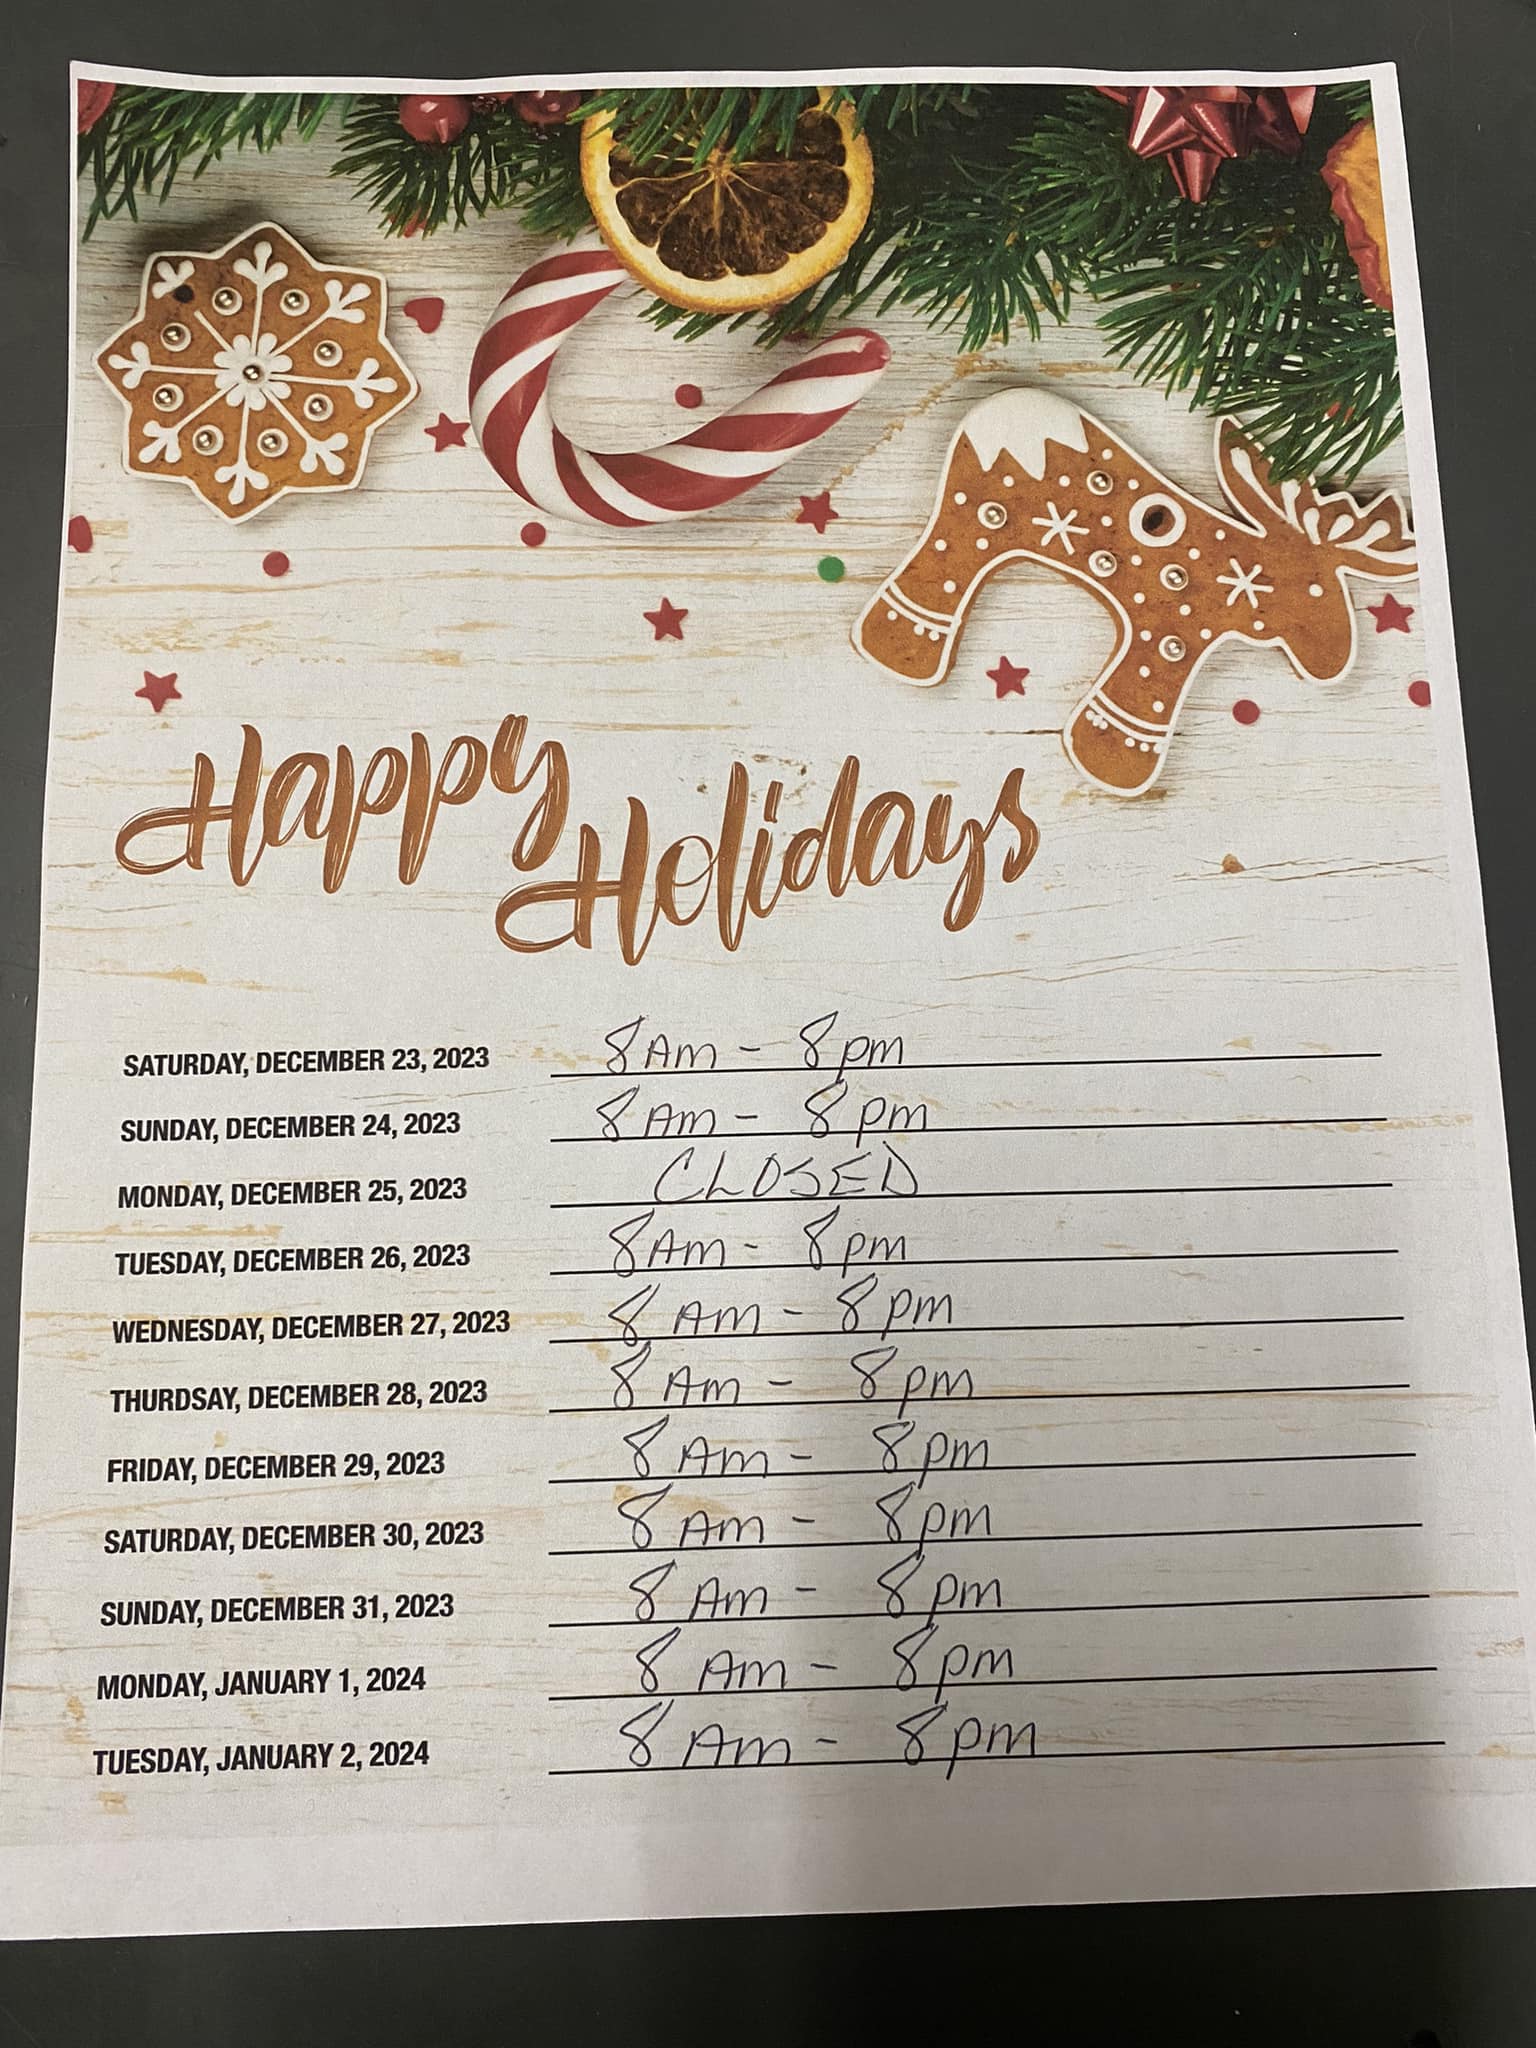 Happy
Holidays
SATURDAY, DECEMBER 23, 2023 8AM - 8pm
SUNDAY, DECEMBER 24, 2023 8AM - 8pm
MONDAY, DECEMBER 25, 2023 CLOSED
TUESDAY, DECEMBER 26, 2023 8AM - 8pm
WEDNESDAY, DECEMBER 27, 2023 8 AM - 8pm
THURDSAY, DECEMBER 28, 2023 8 AM - 8pm
FRIDAY, DECEMBER 29, 2023 8 AM - 8pm
SATURDAY, DECEMBER 30, 2023 8 AM - 8pm
SUNDAY, DECEMBER 31, 2023 8 AM - 8pm
MONDAY, JANUARY 1, 2024 8 AM - 8pm
TUESDAY, JANUARY 2, 2024 8 AM - 8pm